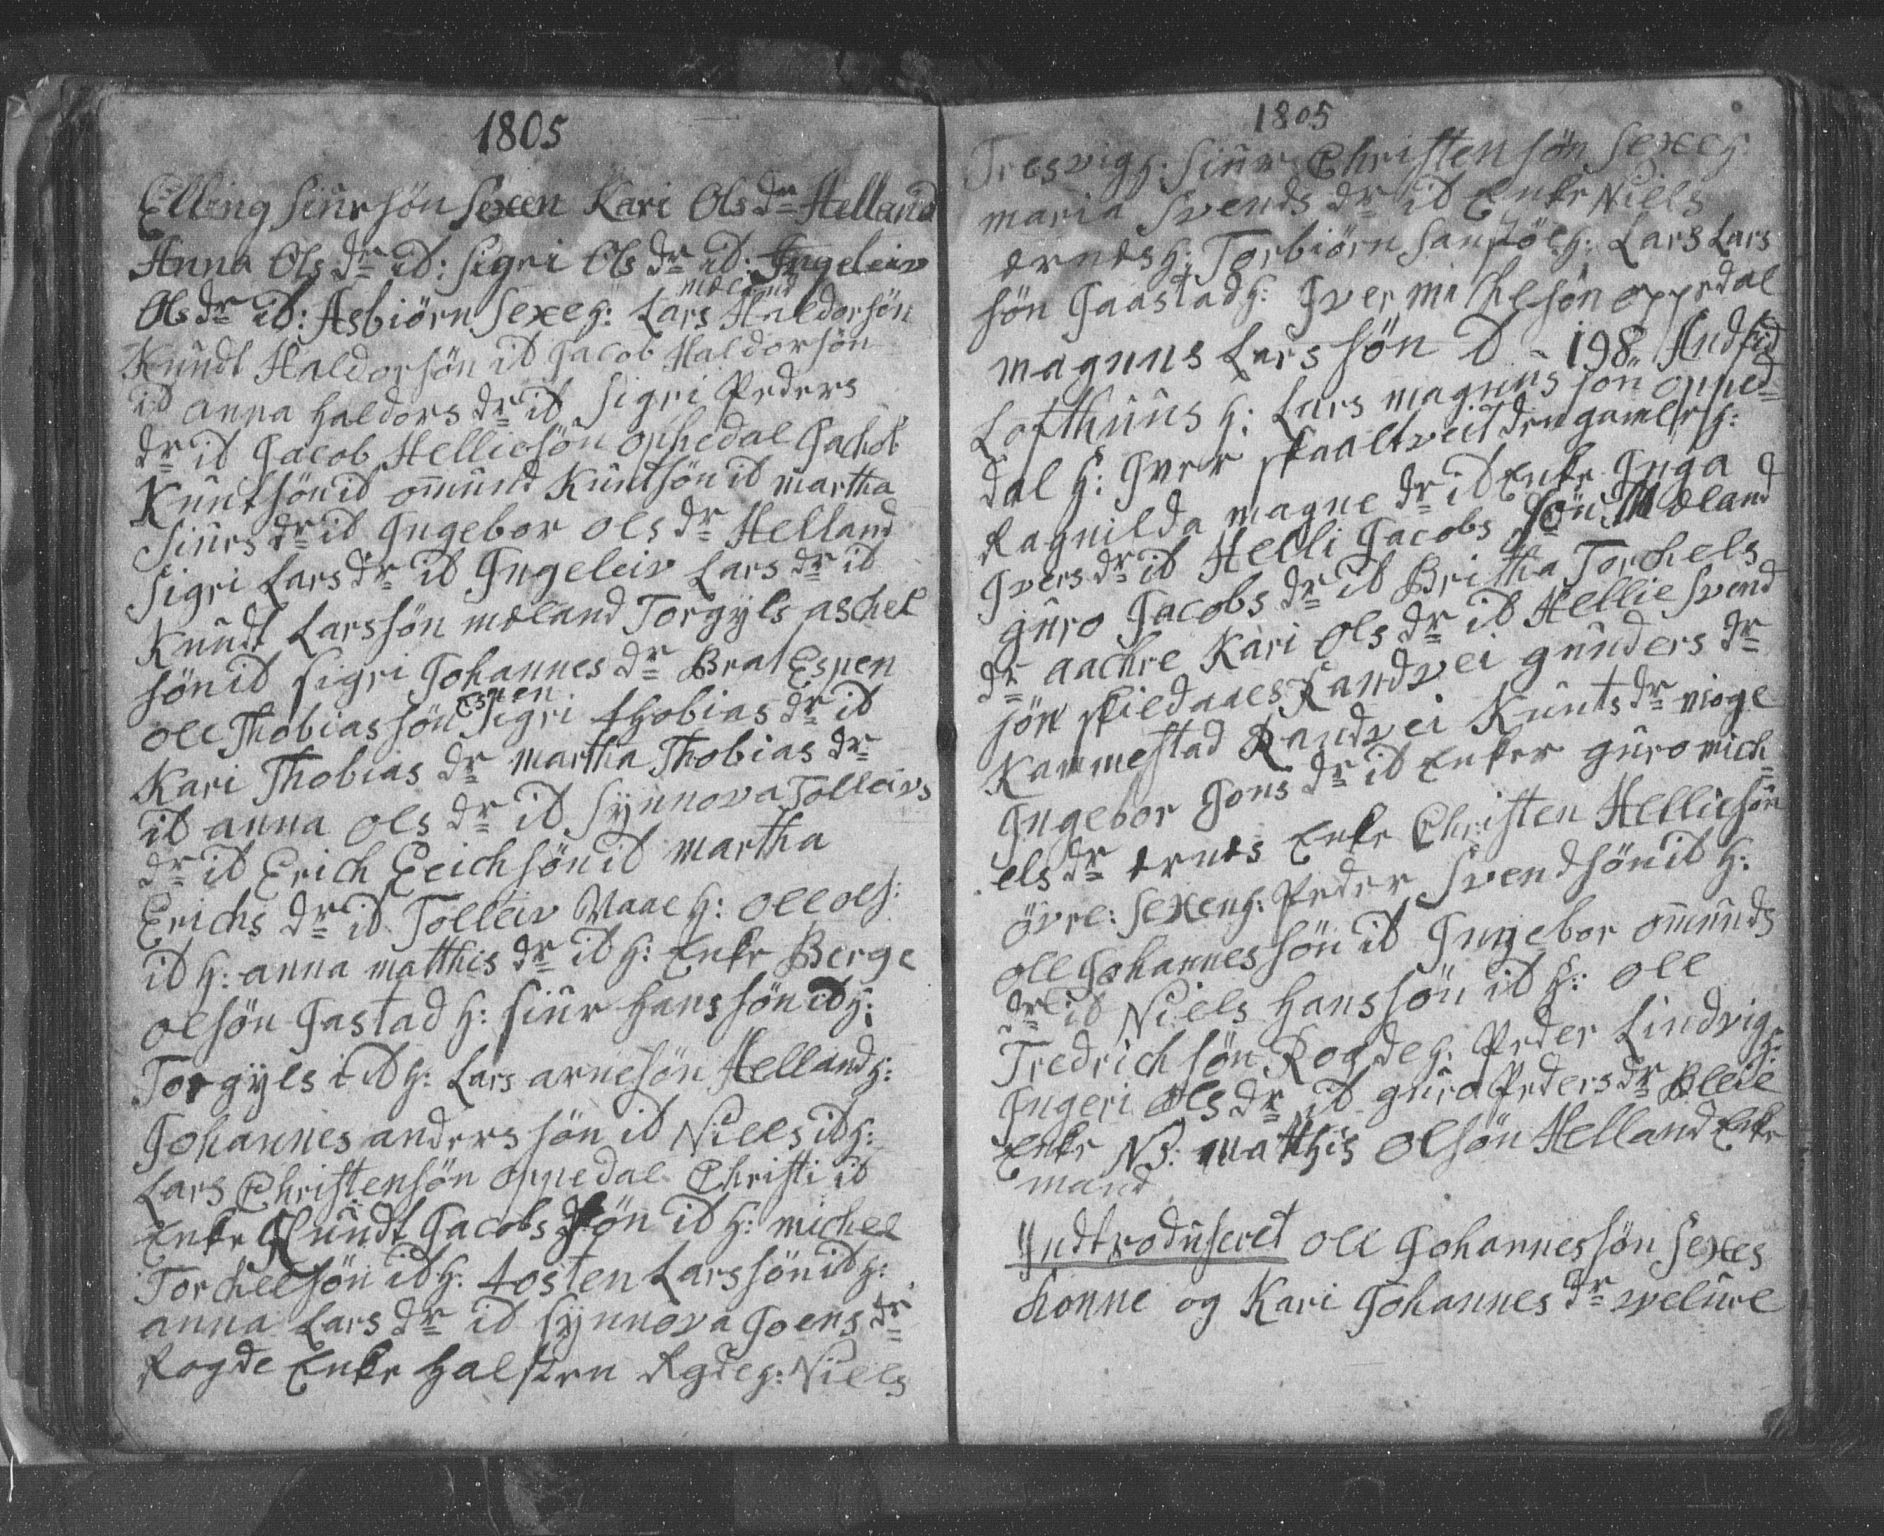 1805
Elling Siursön Sexen Kari Ols dr Helland
Anna Ols dr id: Sigri Ols dr id: Ingeleiv
Ols dr id: Asbiörn Sexe h: Lars Haldorsön
mæland
Kundt Haldorsön id Jacob Haldorsön
id anna haldors dr id Sigri Peders
dr id Jacob Helliesön ophedal Jachob
Kuntsön id omund Kuntsön id martha
Siurs dr id Ingebor Ols dr Helland
Sigri Lars dr id Ingeleiv Lars dr id
Kundt Larssön mæland Torgyls aschel
sön id sigri Johannes dr Brat Espen
oll Thobiassön Espen Sigri thobias dr id
Kari Thobias dr martha Thobias dr
id anna ols dr id Synnova Tolleivs
dr id Erich Erichsön id martha
Erichs dr id Tolleiv Maae h: oll ols:
id h: anna matthis dr id h: Enke Berge
olsön Jastad h: siur hanssön id h:
Torgyls id h: Lars arnesön Helland h:
Johannes anderssön id Niels id h:
Lars Christensön oppedal Christi id
Enke Kundt Jacobs sön id h: michel
Torchelsön id h: tosten Larssön id h:
anna Lars dr id synnova Joens dr
Rogde Enke halsten Rgde h: Niels
1805
Tresvig h: Siur Christensön Sexe h:
maria Svends dr id Enke Niels
ernes h: Torbiörn h: Lars Lars
sön Jaastad h: Iver michelsön oppedal
magnus Larssön id - 198. Andfid
Lofthuus h: Lars magnussön opped=
dal h: Iver skaaltveit den gamle h:
Ragnilda magne dr id Enke Inga
Ivers dr id Helli Jacobs sön Mæland
guro Jacobs dr id Britha Torchels
dr aachre Kari Ols dr id Hellie Svend
sön skieldaaes Randvei gunders dr
Kammestad Randvei Kunts dr mioge
Ingebor Jons dr id Enker guro mich=
els dr ernes Enke Christen Helliesön
övre: Sexen h: Peder Svendsön id h:
oll Johannessön id Ingebor omunds
dr id Niels hanssön id h: oll
Fredrichsön Rogde h: Peder Lindvig h:
Ingeri ols dr id guro Peders dr Bleie
Enke NB: matthis olsön Helland Enke
mand
Indtroduseret oll Johannessön Sexes
konne og Kari Johannes dr velure